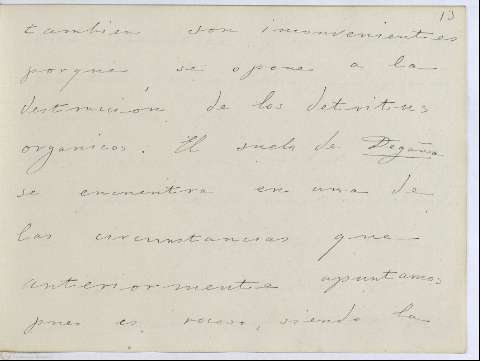 13
tambien son inconvenientes
porque se opone a la
destrucción de los detritus
organicos. El suelo de Degaña
se encuentra en una de
las circunstancias que
anteriormente apuntamos
pues es rocoso, siendo la